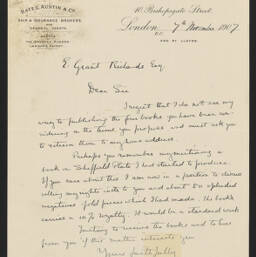 10, Bishopsgate Street,
London, 7th November 1907
E.C.
SHIP & INSURANCE BROKERS
E. Grant Richards Esq
Dear Sir
I regret that I do not see my
way to publishing the five books you have been con-
sidering on the terms you propose and must ask you
to return them to my home address.
Perhaps you remember my mentioning a
book on Sheffield Plate I had started to produce.
If you care about this I am now in a position to discuss
selling my rights into to you and about 50 splendid
negatives gold pieces which I had made. The book
carries a 10% royalty. It would be a standard work
Trusting to receive the books and to hear
from you if this matter interests you
Yours faithfully